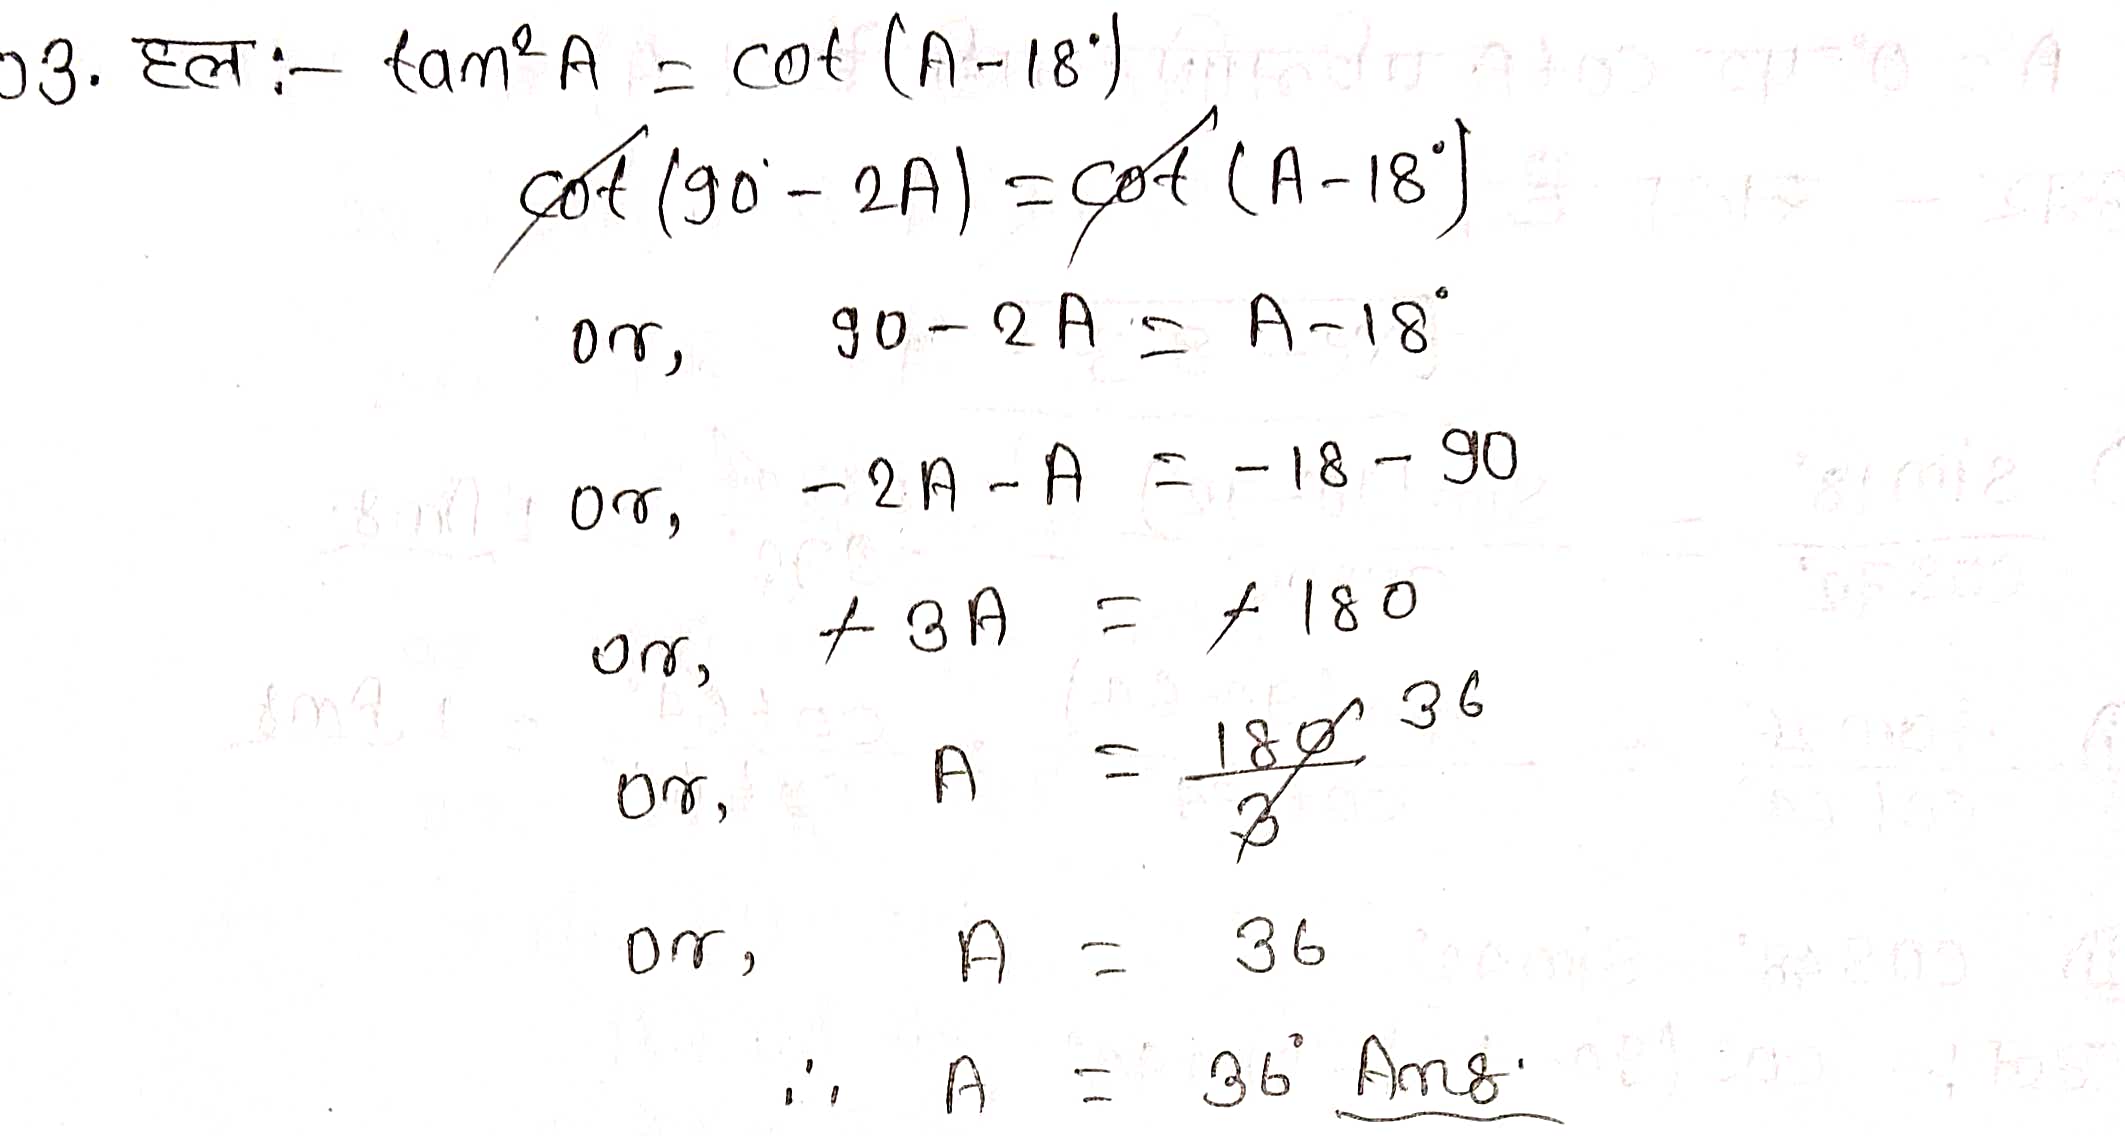 03. हल :- tan²A = cot (A-18°)
cot (90° - 2A) = cot (A-18°)
or, 90 - 2A = A-18°
or, -2A - A = -18 - 90
or, + 3A = + 180
or, A = 180/3 36
or, A = 36
∴ A = 36° Ans.